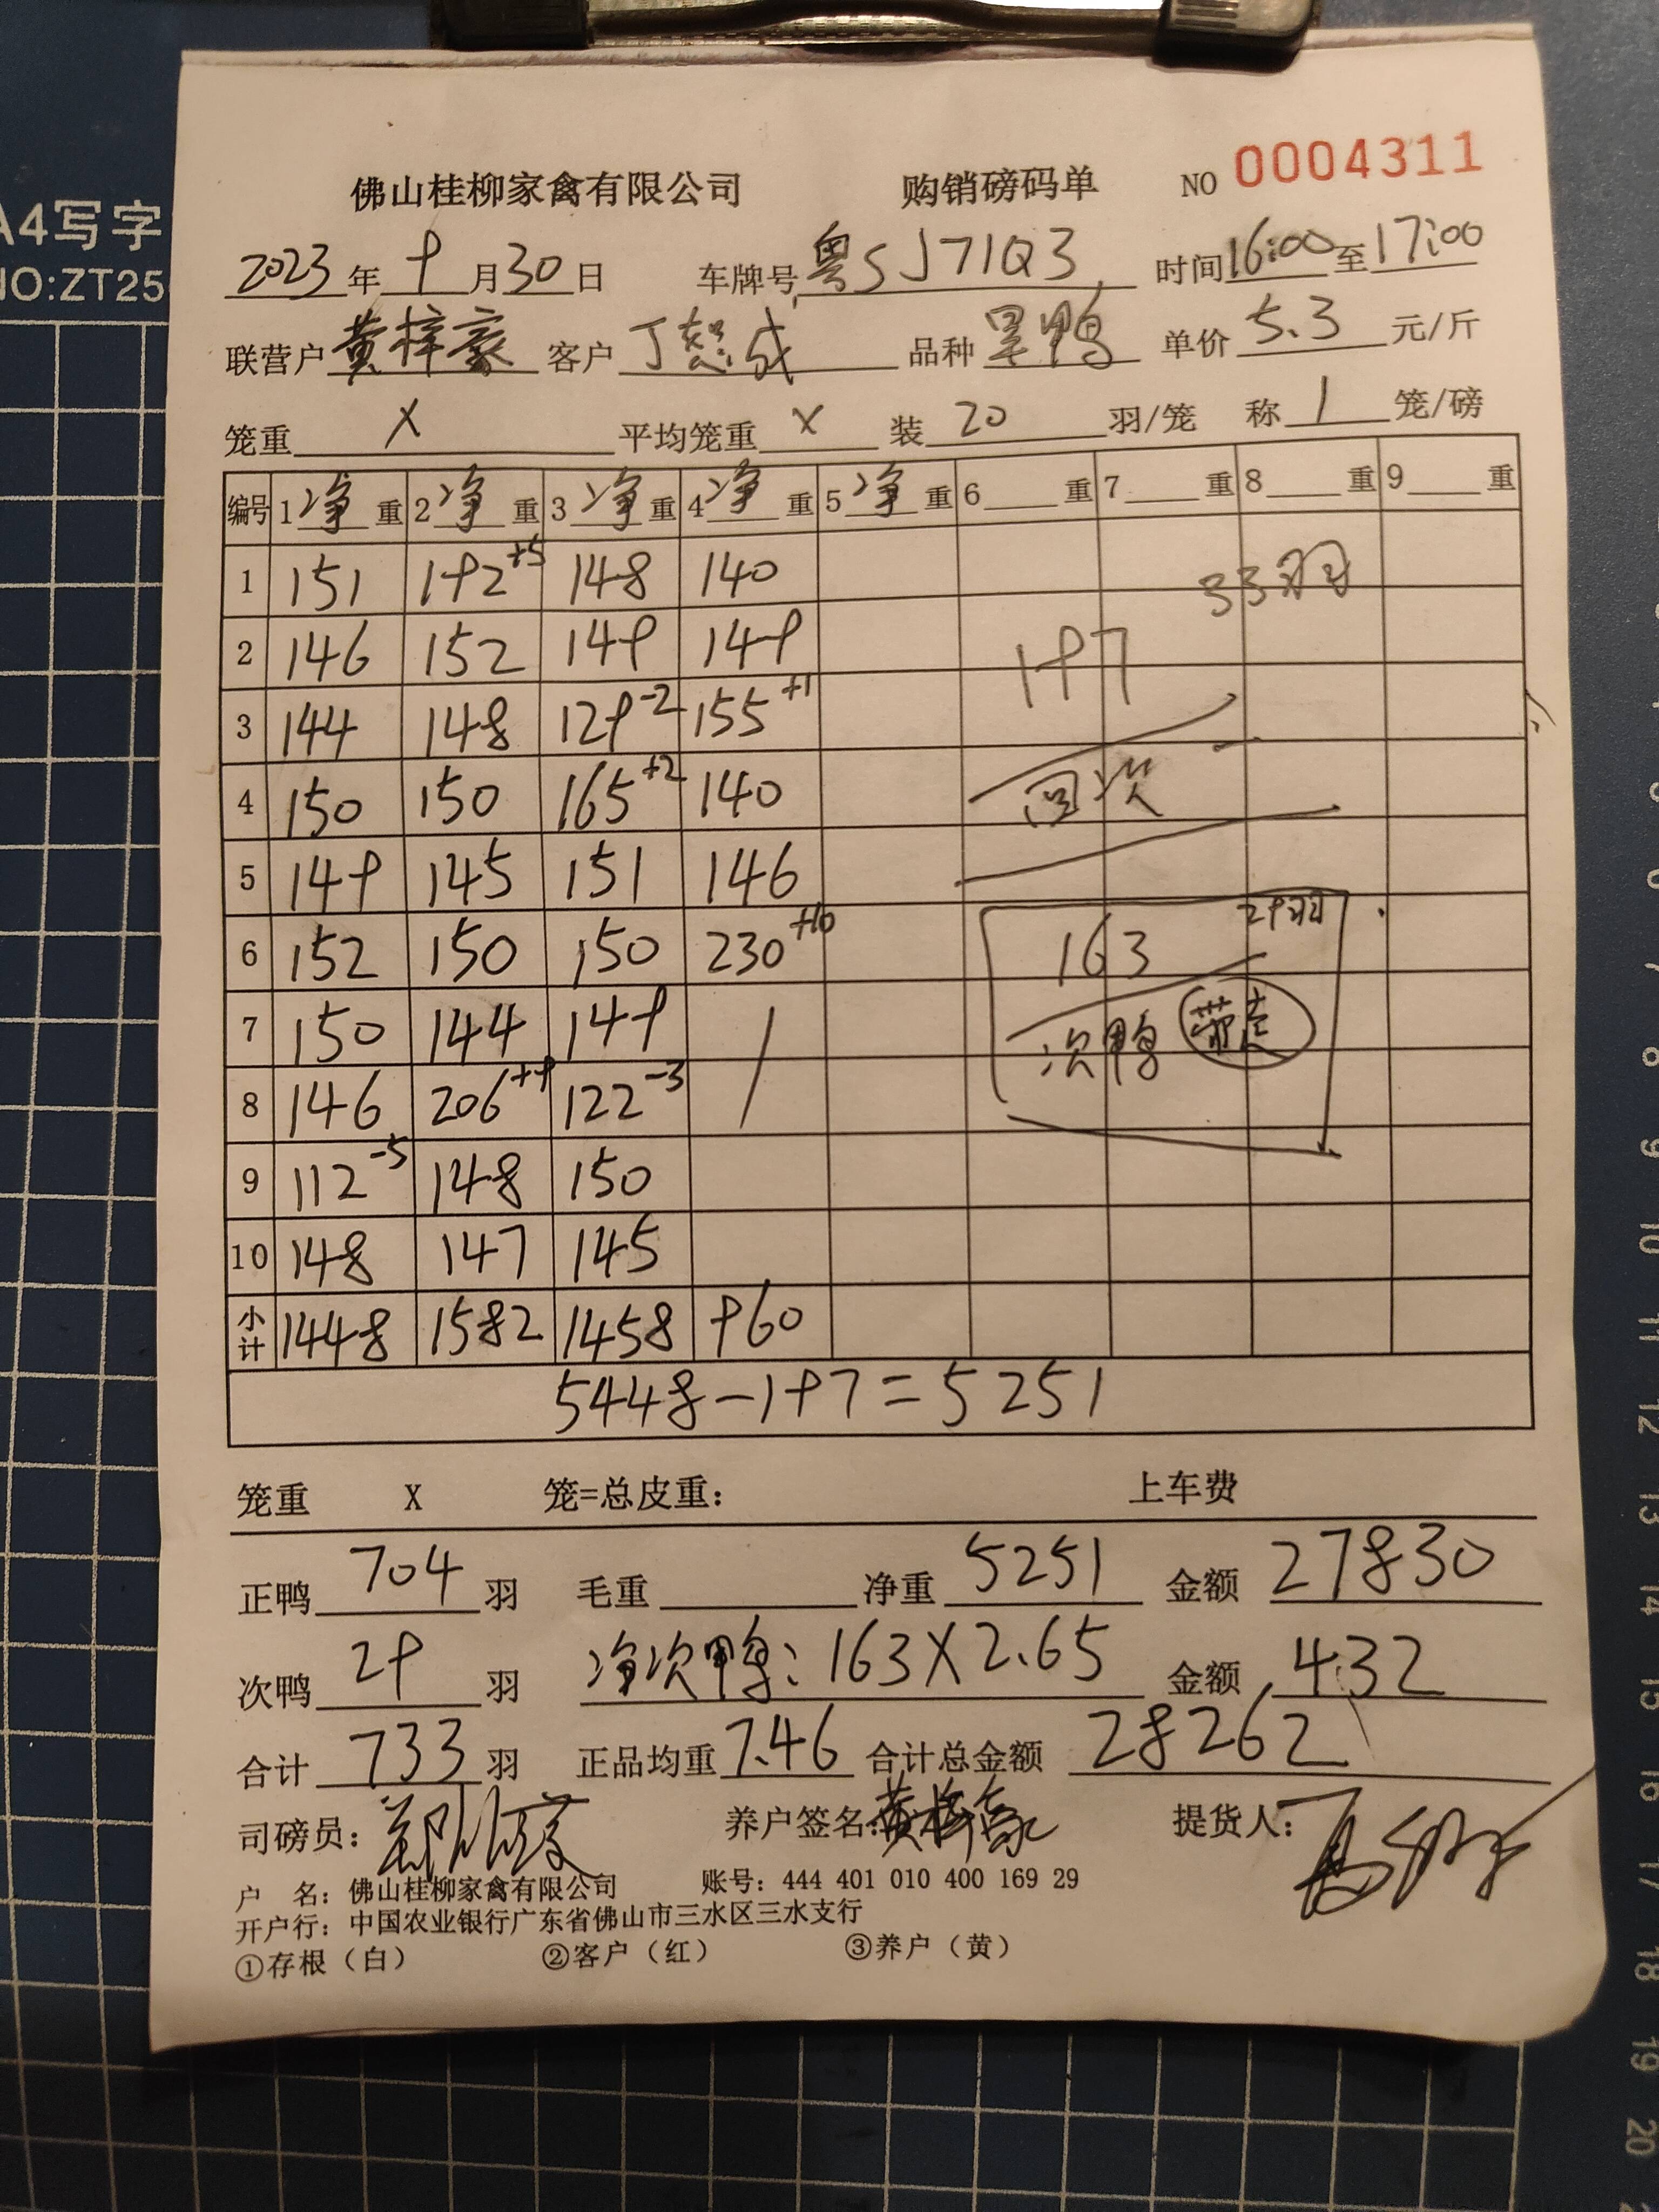 A4写字
NO:ZT25
佛山桂柳家禽有限公司 购销磅码单 NO 0004311
2023年9月30日 车牌号粤SJ71Q3 时间16:00至17:00
联营户黄梓豪 客户丁恕成 品种黑鸭 单价5.3元/斤
笼重X 平均笼重X 装20羽/笼 称1笼/磅
编号 1净重 2净重 3净重 4净重 5净重 6重 7重 8重 9重
1 151 192+5 148 140 33羽
2 146 152 149 149 197
3 144 148 129-2 155+1
4 150 150 165+2 140 回次
5 149 145 151 146
6 152 150 150 230+10 163 29羽
7 150 144 149 / 次鸭 带走
8 146 206+9 122-3
9 112-5 148 150
10 148 147 145
小计 1448 1582 1458 960
5448-197=5251
笼重 X 笼=总皮重: 上车费
正鸭704羽 毛重 净重5251 金额27830
次鸭29羽 净次鸭:163X2.65 金额432
合计733羽 正品均重7.46 合计总金额28262
司磅员: 养户签名:黄梓豪 提货人:
户 名:佛山桂柳家禽有限公司 账号:444 401 010 400 169 29
开户行:中国农业银行广东省佛山市三水区三水支行
①存根(白) ②客户(红) ③养户(黄)
6
7
8
9
10
11
12
13
14
15
16
17
18
19
20